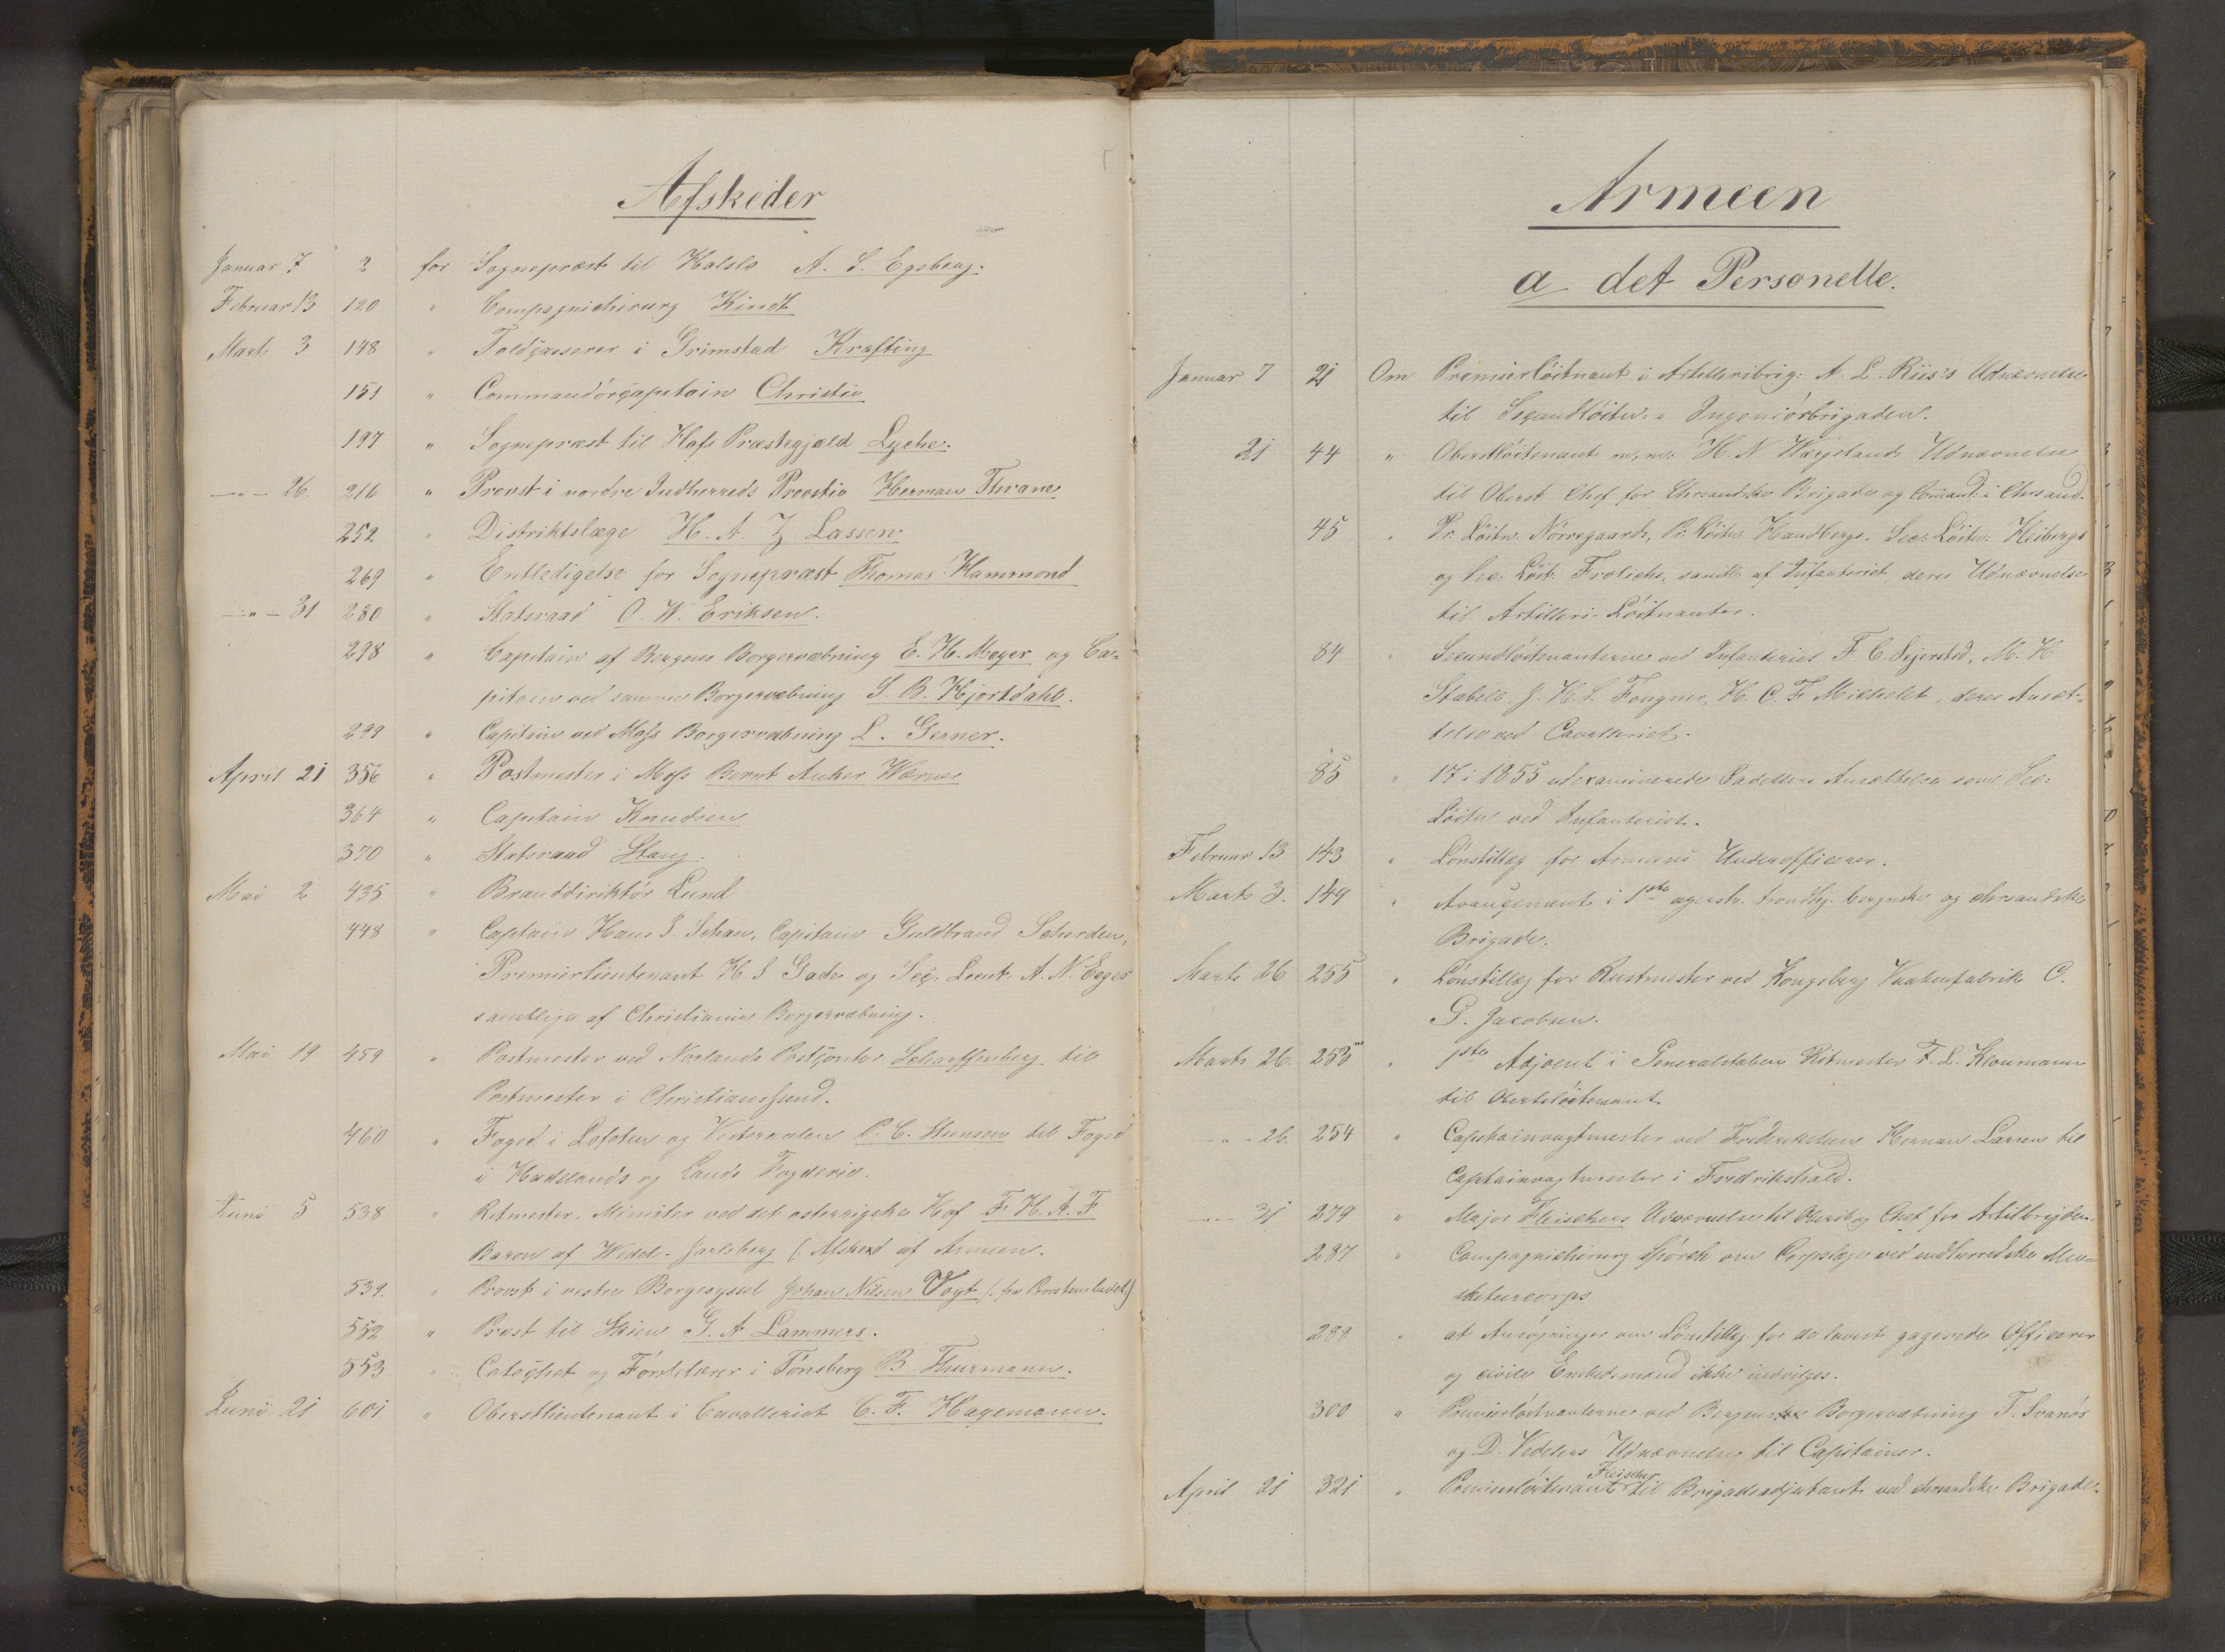 Afskeder
Januar 7 2 for Sognepræst til Halslo A. S. Egeberg.
Februar 13 120 " Compagnichirurg Kindt
Marts 3 148 " Toldcasserer i Grimstad Kræfting
151 " Commandörcapitain Christie
197 " Sognepræst til Hofs Præstegjæld Lyche.
— " — 26. 216 " Provst i nordre Indherreds Provsti Herman Thrane
252 " Distriktslæge H. A. Z. Lassen
269 " Entledigelse for Sognepræst Thomas Hammond
— " — 31 280 " Statsraad O. W. Eriksen.
298 " Capitain af Bergens Borgervæbning E. H. Meyer og Ca-
pitain ved samme Borgervæbning S. B. Hjortdahl.
299 " Capitain ved Moss Borgervæbning L. Gerner.
April 21 356 " Postmester i Moss Bernt Anker Wærner
364 " Capitain Knudsen
370 " Statsraad Stang.
Mai 2 435 " Branddirektör Lund
448 " Captain Hans S. Schau, Capitain Guldbrand
Premierlieutenant H. S. Gade og Sec. Lieut. A. N. Eeger
samtlige af Christiania Borgervæbning.
Mai 19 459 " Postmester ved Norlands Postcontor Scharffenberg til
Postmester i Christianssund.
460 " Foged i Lofoten og Vesteraalen P. C. Steensen til Foged
i Hadelands og Lands Fogderie.
Juni 5 538 " Ritmester, Minister ved det østerrigske Hof F. H. A. F.
Baron af Wedel-Jarlsberg (Afsked af Armeen.
539. " Provst i vestre Borgesyssel Johan Nilsen Vogt (fra Provstembedet)
552 " Præst til Skien G. A. Lammers.
553 " Catechet og Förstelærer i Tönsberg B. Thurmann.
Juni 21 601 " Oberstlieutenant i Cavalleriet C. F. Hagemann.
Armeen
a det Personelle.
Januar 7 21 Om Premierlöitnant i Artilleribrig: A. L. Riis's Udnævnelse
til Secondlöitn. i Ingeniörbrigaden.
21 44 " Oberstlöitenant m, m: H. N. Wærgelands Udnævnelse
til Oberst Chef for Chrsandske Brigade og Comand: i Chrsand.
45 " Pr. Löitn. Nörregaards, Pr. Löitn. Handbergs, Sec: Löitn: Heibergs
og Sec: Löit: Frölichs, samtl: af Infanteriet, deres Udnævnelse
til Artilleri-Löitnanter.
84 " Secundlöitenanterne ved Infanteriet F. C. Sejersted, M. H.
Stabell, J. H. L. Fougner, H. C. F. Michelet, deres Ansæt-
telse ved Cavalleriet.
85 " 17 i 1855 udexaminerede Cadetters Ansættelse som Sec:
Löitn. ved Infanteriet.
Februar 13 143 " Lönstillæg for Armeens Underofficerer.
Marts 3. 149 " Avancement i 1ste agersh. trondhj. bergenske og chrsandske
Brigade.
Marts 26 255 " Lönstillæg for Rustmester ved Kongsberg Vaabenfabrik C.
G. Jacobsen.
Marts 26. 253 " 1ste Adjoent i Generalstaben Ritmester F. L. Kloumann
til Oberstlöitenant.
— " — 26. 254 " Capitainvagtmester ved Fredriksteen Herman Larsen til
Captainvagtmester i Fredrikshald.
— " — 31 279 " Major Fleischers Udnævnelse til Oberst og Chef for Artilbrigden.
287 " Compagnichirurg om Corpslæge ved indherredske Mus-
keteercorps
289 " at Ansøgninger om Lönstillæg for de lavest gagerede Officerer
og civile Embedsmænd ikke indvilges.
300 " Premierlöitnanterne ved Bergens Borgervæbning T. Svanös
og D. Vedelers Udnævnelse til Capitainer.
Fleischer
April 21 321 " Premierlöitenant til Brigadeadjutant ved chrsandske Brigade.